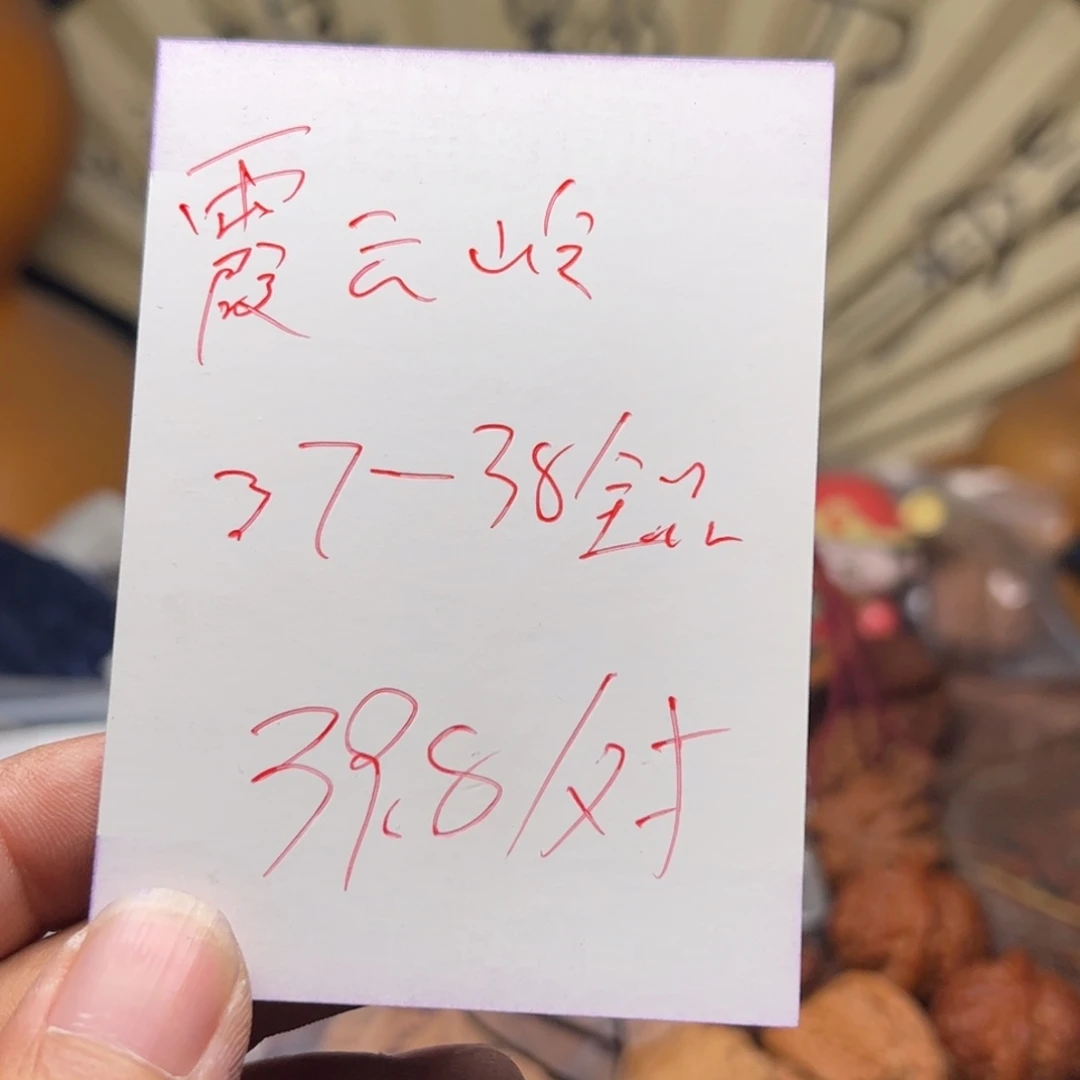 霞云岭
37-38/
39.8/对